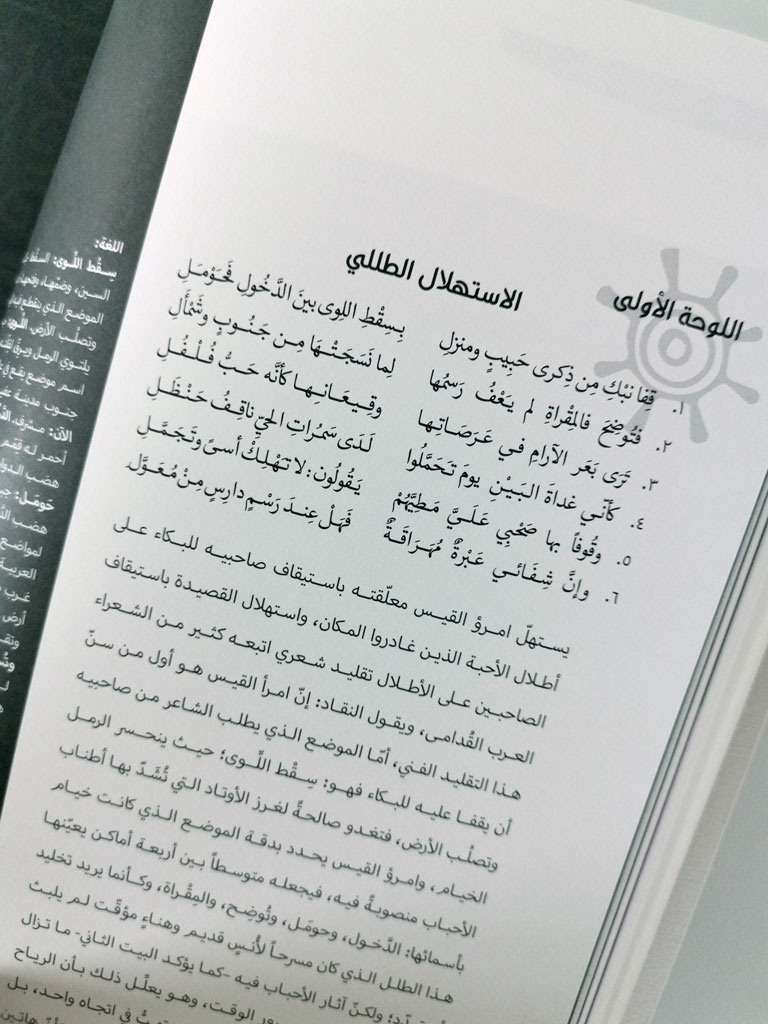 اللوحة الأولى
الاستهلال الطللي
١. قِفا نبْكِ مِن ذِكرى حَبِيبٍ ومنزلِ بِسِقْطِ اللِوى بينَ الدَّخُولِ فَحَوْمَـلِ
٢. فَتُوضِحَ فالمِقْراةِ لم يَعْفُ رَسمُها لِما نَسَجَتْـهَا مِـن جَنُـوبٍ وشَمْألِ
٣. تَرَى بَعَر الآرامِ في عَـرَصَـاتِـها وقِـيـعَـانِـهـا كأنَّـه حَـبُّ فُـلْـفُـلِ
٤. كأنّي غداةَ البَـيْـنِ يومَ تَحَمَّلُوا لَـدَى سَمُـراتِ الحيِّ ناقِـفُ حَنْظَـلِ
٥. وقُوفاً بها صَحْبِي عَلَـيَّ مَـطِيَّهُمْ يَـقُولُون: لا تَهْلِكْ أسىً وتَجَمَّـلِ
٦. وإنَّ شِـفَـائـي عَـبْرةٌ مُـهَـرَاقَـةٌ فَهَـلْ عِنـدَ رَسْـمٍ دارِسٍ مِـنْ مُـعَـوَّلِ
يستهلّ امرؤ القيس معلّقته باستيقاف صاحبيه للبكاء على
أطلال الأحبة الذين غادروا المكان، واستهلال القصيدة باستيقاف
الصاحبين على الأطلال تقليد شعري اتبعه كثير من الشعراء
العرب القُدامى، ويقول النقاد: إنّ امرأ القيس هو أول من سنّ
هذا التقليد الفني، أمّا الموضع الذي يطلب الشاعر من صاحبيه
أن يقفا عليه للبكاء فهو: سِقْط اللِّوى؛ حيث ينحسر الرمل
وتصلُب الأرض، فتغدو صالحةً لغرز الأوتاد التي تُشَدّ بها أطناب
الخيام، وامرؤ القيس يحدد بدقة الموضع الذي كانت خيام
الأحباب منصوبةً فيه، فيجعله متوسطاً بين أربعة أماكن يعيّنها
بأسمائها: الدَّخول، وحومَل، وتُوضِح، والمِقْراة، وكأنما يريد تخليد
هذا الطلل الذي كان مسرحاً لأُنسٍ قديم وهناءٍ مؤقّت لم يلبث
ولكنّ آثار الأحباب فيه -كما يؤكد البيت الثاني- ما تزال
الوقت، وهو يعلّل ذلك بأن الرياح
في اتجاه واحد، بل
اللغة:
سِـقْط اللِّـوى:
السين، وضمّها،
الموضع الذي
وتصلُب الأرض.
يلتوي الرمل
اسم موضع يقع
جنوب مدينة
الآن:
أحمر له
هضب
حَومَل:
هضب
لمواضع
العربية
غرب
أرض